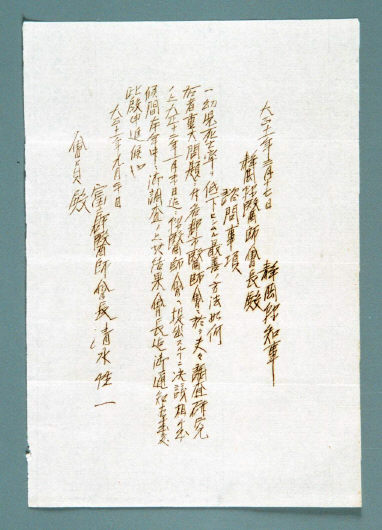 大正十一年三月七日
静岡縣知事
静岡縣醫師會長殿
諮問事項
一幼児死亡率ヲ低下セシムル最善ノ方法如何
右者重大問題ニ付各郡市醫師會ニ於テ夫々調査研究
ノ上大正十二年一月十日迄ニ縣醫師會ヘ提出スルコトニ決議相成
候間年会中ニ御調査ノ上其結果會長迄御通知
此段申進候也
大正十一年九月 日
富士郡醫師會長清水
會員殿